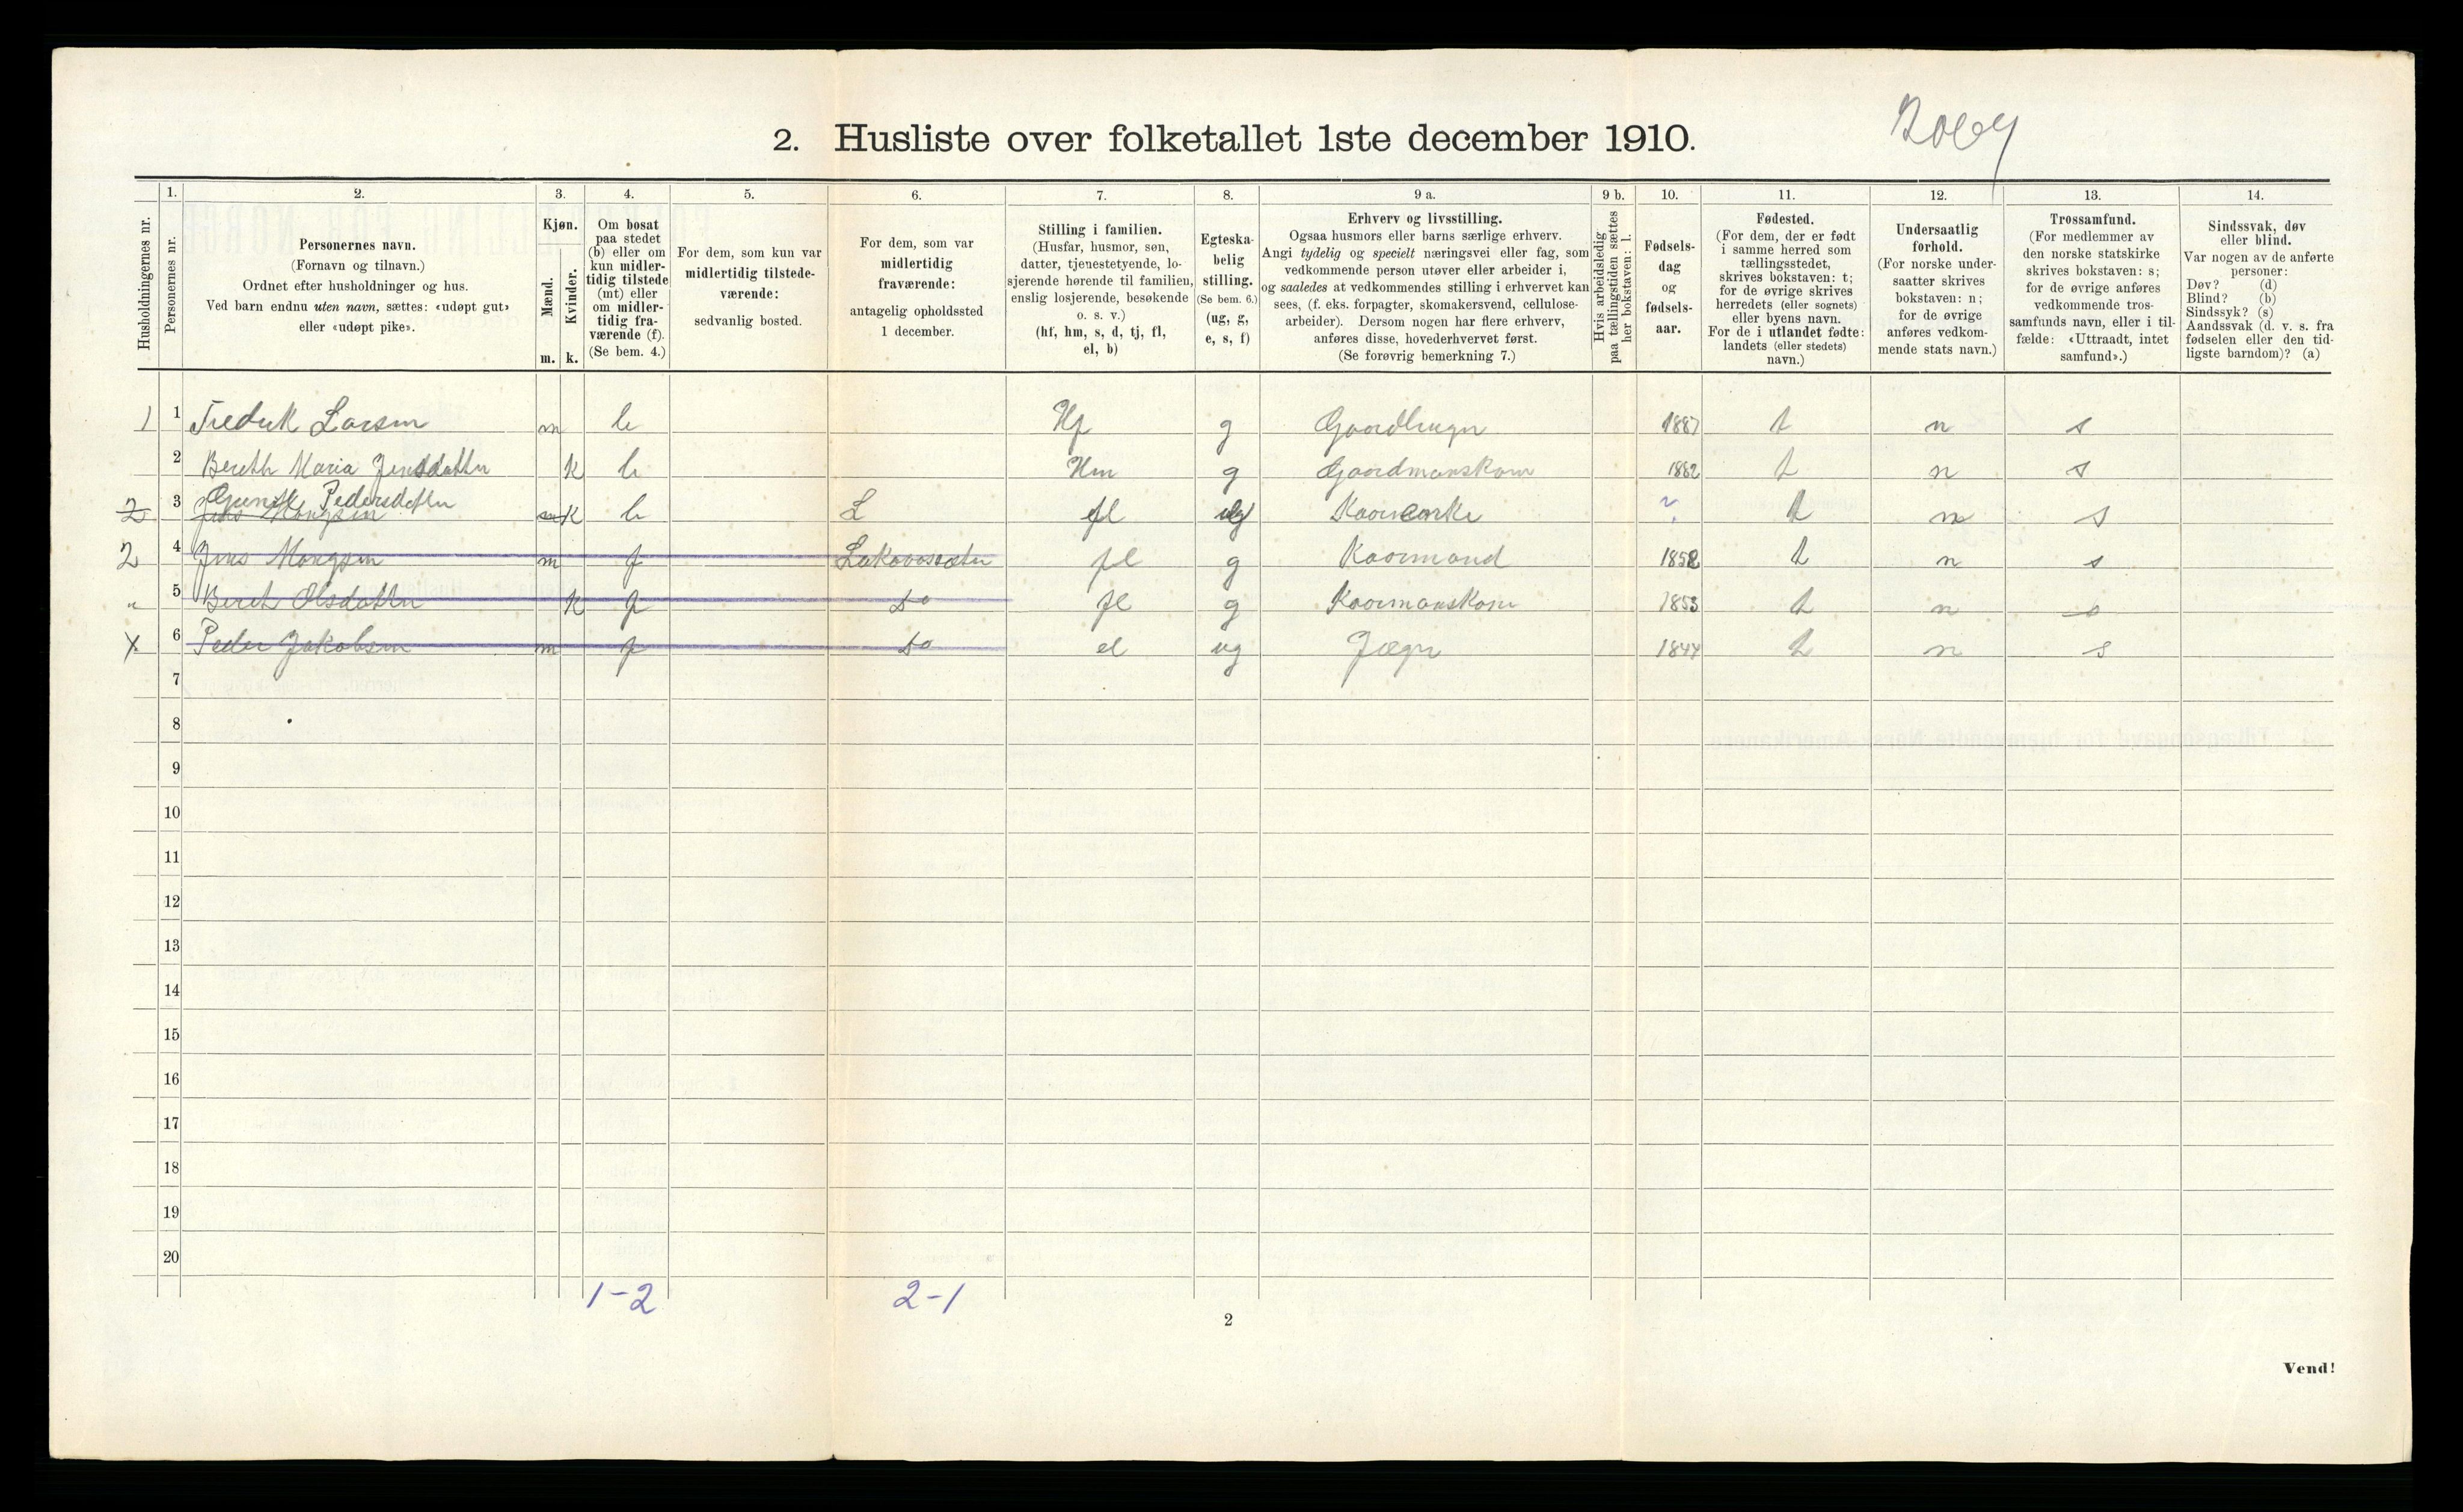 2. Husliste over folketallet 1ste december 1910.
1. 2. 3. 4. 5. 6. 7. 8. 9 a. 9 b. 10. 11. 12. 13. 14.
Husholdningernes nr.
Personernes nr.
Personernes navn.
(Fornavn og tilnavn.)
Ordnet efter husholdninger og hus.
Ved barn endnu uten navn, sættes: «udøpt gut»
eller «udøpt pike».
Kjøn.
Mænd.
Kvinder.
m. k.
Om bosat
paa stedet
(b) eller om
kun midler-
tidig tilstede
(mt) eller
om midler-
tidig fra-
værende (f).
(Se bem. 4.)
For dem, som kun var
midlertidig tilstede-
værende:
sedvanlig bosted.
For dem, som var
midlertidig
fraværende:
antagelig opholdssted
1 december.
Stilling i familien.
(Husfar, husmor, søn,
datter, tjenestetyende, lo-
sjerende hørende til familien,
enslig losjerende, besøkende
o. s. v.)
(hf, hm, s, d, tj, fl,
el, b)
Egteska-
belig
stilling.
(Se bem. 6.)
(ug, g,
e, s, f)
Erhverv og livsstilling.
Ogsaa husmors eller barns særlige erhverv.
Angi tydelig og specielt næringsvei eller fag, som
vedkommende person utøver eller arbeider i,
og saaledes at vedkommendes stilling i erhvervet kan
sees, (f. eks. forpagter, skomakersvend, cellulose-
arbeider). Dersom nogen har flere erhverv,
anføres disse, hovederhvervet først.
(Se forøvrig bemerkning 7.)
Hvis arbeidsledig
paa tællingstiden sættes
her bokstaven: l.
Fødsels-
dag
og
fødsels-
aar.
Fødested.
(For dem, der er født
i samme herred som
tællingsstedet,
skrives bokstaven: t;
for de øvrige skrives
herredets (eller sognets)
eller byens navn.
For de i utlandet fødte:
landets (eller stedets)
navn.)
Undersaatlig
forhold.
(For norske under-
saatter skrives
bokstaven: n;
for de øvrige
anføres vedkom-
mende stats navn.)
Trossamfund.
(For medlemmer av
den norske statskirke
skrives bokstaven: s;
for de øvrige anføres
vedkommende tros-
samfunds navn, eller i til-
fælde: «Uttraadt, intet
samfund».)
Sindssvak, døv
eller blind.
Var nogen av de anførte
personer:
Døv? (d)
Blind? (b)
Sindssyk? (s)
Aandssvak (d. v. s. fra
fødselen eller den tid-
ligste barndom)? (a)
1 1 Fredrik Larsen m b Hf g Gaardbruger 1887 t n s
2 Bereth Maria Jensdatter k b Hm g Gaardmanskone 1882 t n s
2 3 Pedersdatter k b L fl Kaarenke ? t n s
2 4 Jens m f fl g Kaarmand 1852 t n s
" 5 Beret Olsdatter k f do fl g Kaarmanskone 1853 t n s
x 6 Peder Jakobsen m f do el ug Jæger 1844 t n s
7
8
9
10
11
12
13
14
15
16
17
18
19
20
1-2 2-1
2
Vend!